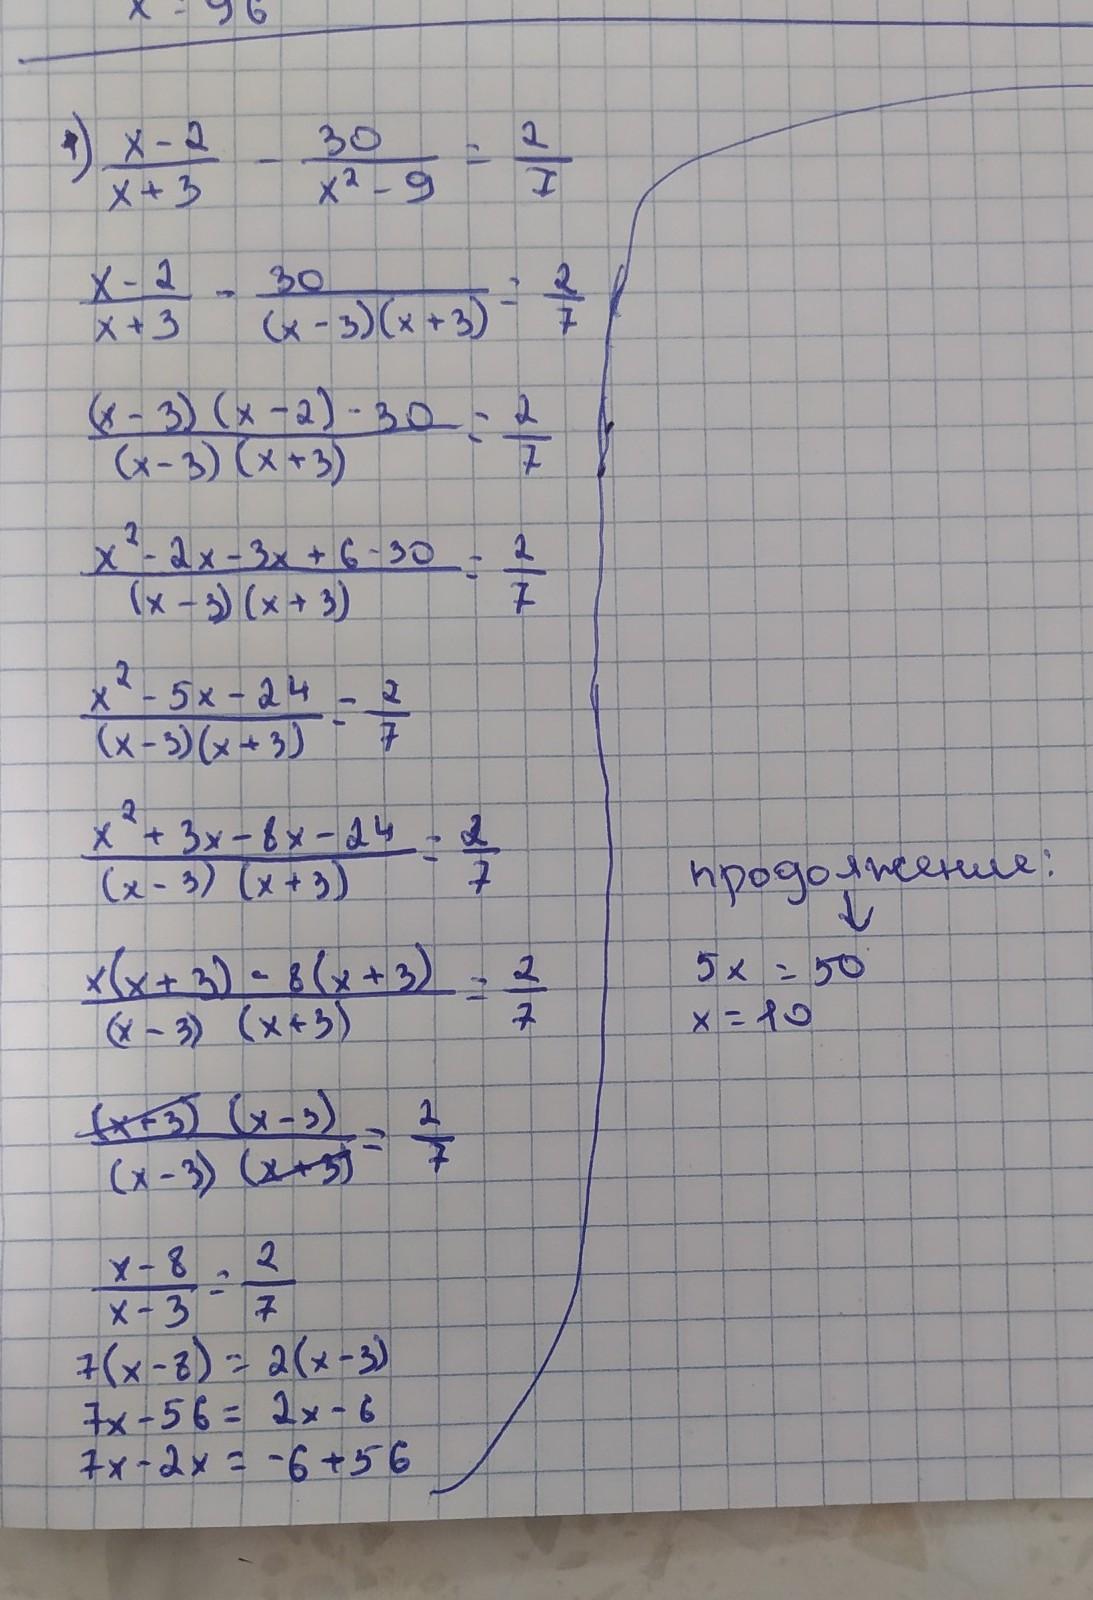 x = 96
1) (x - 2)/(x + 3) - 30/(x² - 9) = 2/7
(x - 2)/(x + 3) - 30/((x - 3)(x + 3)) = 2/7
((x - 3)(x - 2) - 30)/((x - 3)(x + 3)) = 2/7
(x² - 2x - 3x + 6 - 30)/((x - 3)(x + 3)) = 2/7
(x² - 5x - 24)/((x - 3)(x + 3)) = 2/7
(x² + 3x - 8x - 24)/((x - 3)(x + 3)) = 2/7
(x(x + 3) - 8(x + 3))/((x - 3)(x + 3)) = 2/7
((x + 3)(x - 3))/((x - 3)(x + 3)) = 2/7
(x - 8)/(x - 3) = 2/7
7(x - 8) = 2(x - 3)
7x - 56 = 2x - 6
7x - 2x = -6 + 56
продолжение:
↓
5x = 50
x = 10